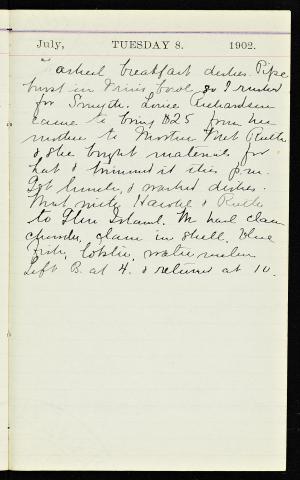 July, TUESDAY 8. 1902.
Washed breakfast dishes. Pipe
burst in so I rushed
for Smyth. Richardson
came to bring $25 from her
mother to Mother. Met Ruth
& she bought materials for
hat & trimmed it this p.m.
Got lunch, & washed dishes.
Went with Harold & Ruth
to Glen Island. We had clam
chowder, clams in shell, blue
fish, lobster, watermelon
Left B. at 4. & returned at 10.